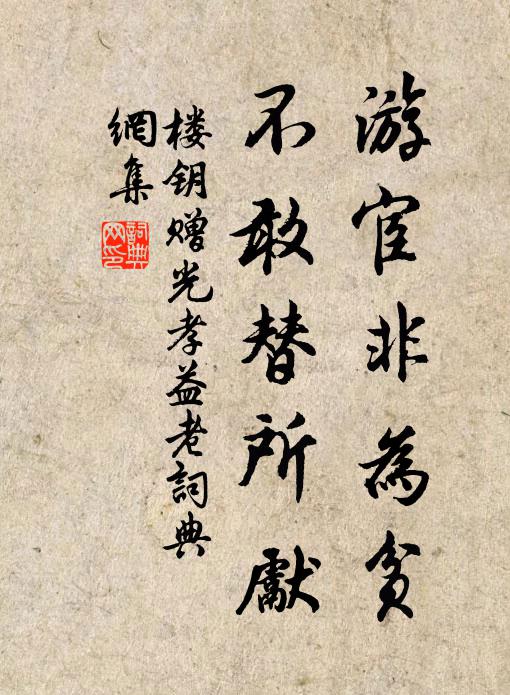 游宦非為貧
不敢替所獻
楼钥赠光孝益老詞典
網集
詞典
网印